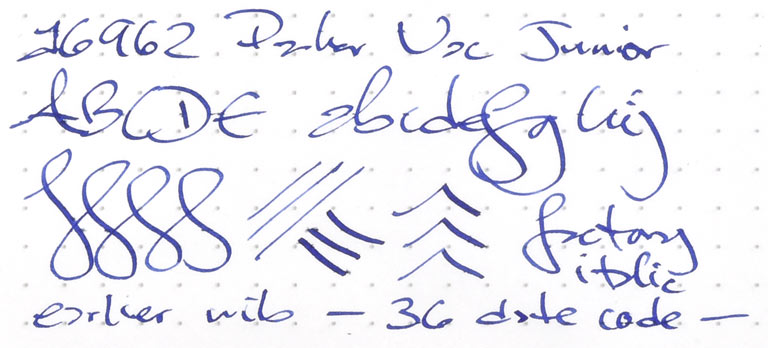 26962 Parker Vac Junior
ABCDE abcdefghij
factory
italic
earlier nib – 36 date code –